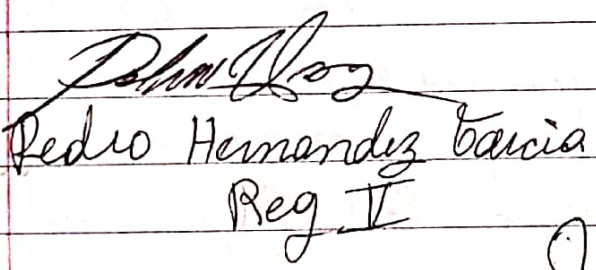 Pedro Hernandez Garcia
Reg V